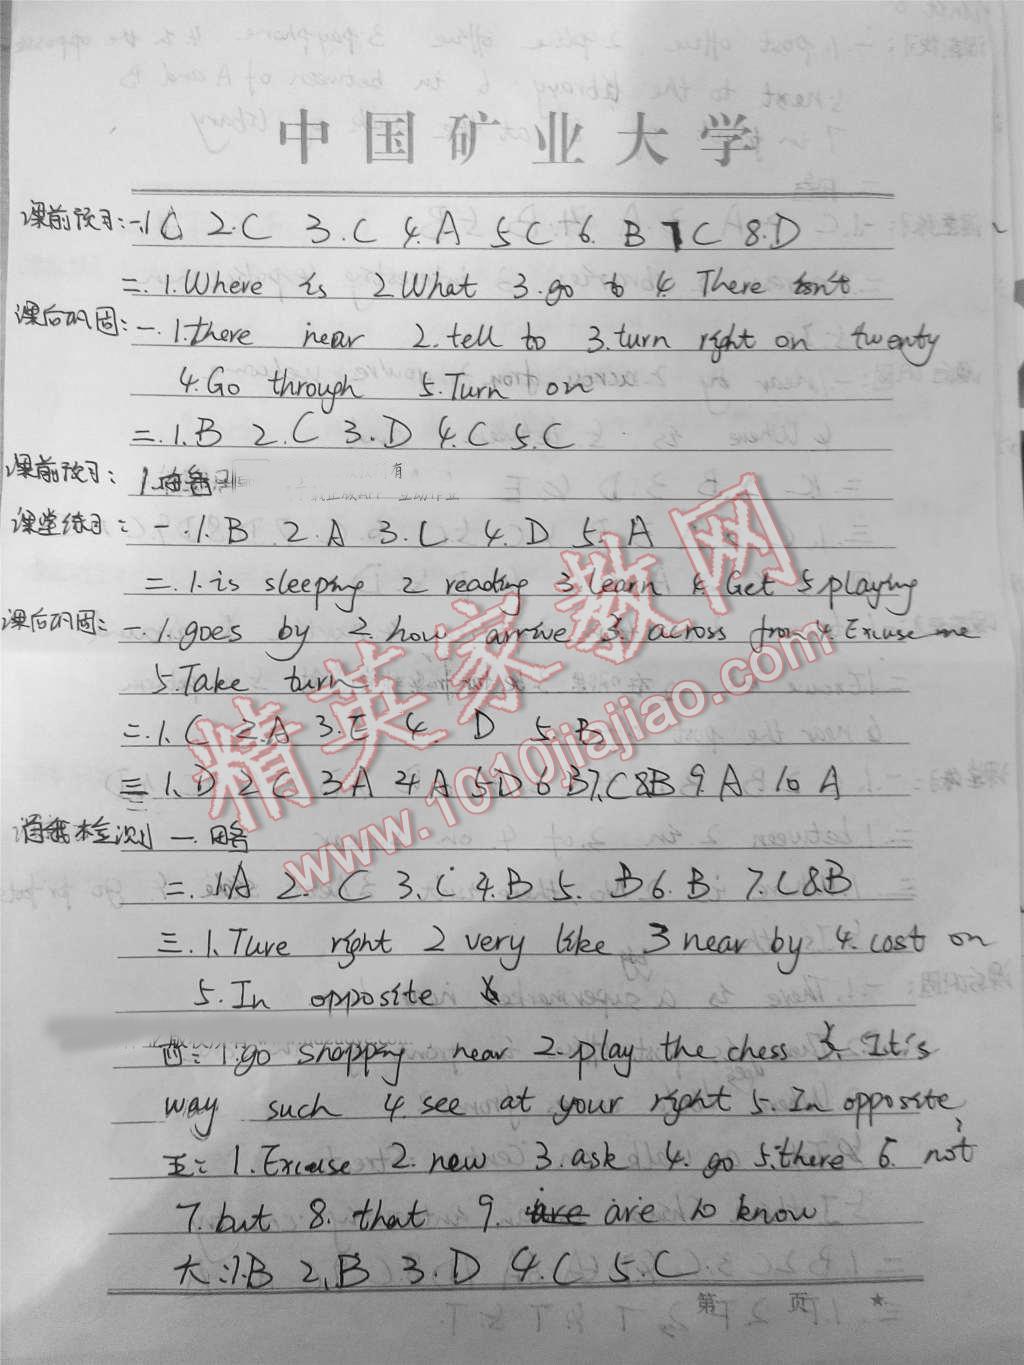 中国矿业大学
课前预习:一.1 C 2.C 3.C 4.A 5 C 6. B 7 C 8.D
二.1.Where is 2 What 3.go to 4. There isn't
课后巩固:一.1.there near 2.tell to 3.turn right on twenty
4.Go through 5.Turn on
二.1.B 2.C 3.D 4.C 5.C
课前预习: 1.略 有
课堂练习:一.1.B 2.A 3.C 4.D 5.A
二.1.is sleeping 2 reading 3 learn 4 Get 5 playing
课后巩固:一.1.goes by 2.how arrive 3. across from 4. Excuse me
5.Take turn
二.1.C 2.A 3.E 4. D 5.B
三 1.D 2 C 3 A 4 A 5 D 6 B 7.C 8.B 9. A 10 A
自我检测 一.略
二.1A 2. C 3.C 4.B 5. B 6.B 7.C 8.B
三.1.Ture right 2 very like 3 near by 4.cost on
5.In opposite
四:1.go shopping near 2.play the chess 3. It's
way such 4.see at your right 5.In opposite
五:1.Excuse 2.new 3.ask 4.go 5.there 6. not
7.but 8.that 9. are 10 know
六:1.B 2.B 3.D 4.C 5.C
第 页 ★
精英家教网
www.1010jiajiao.com